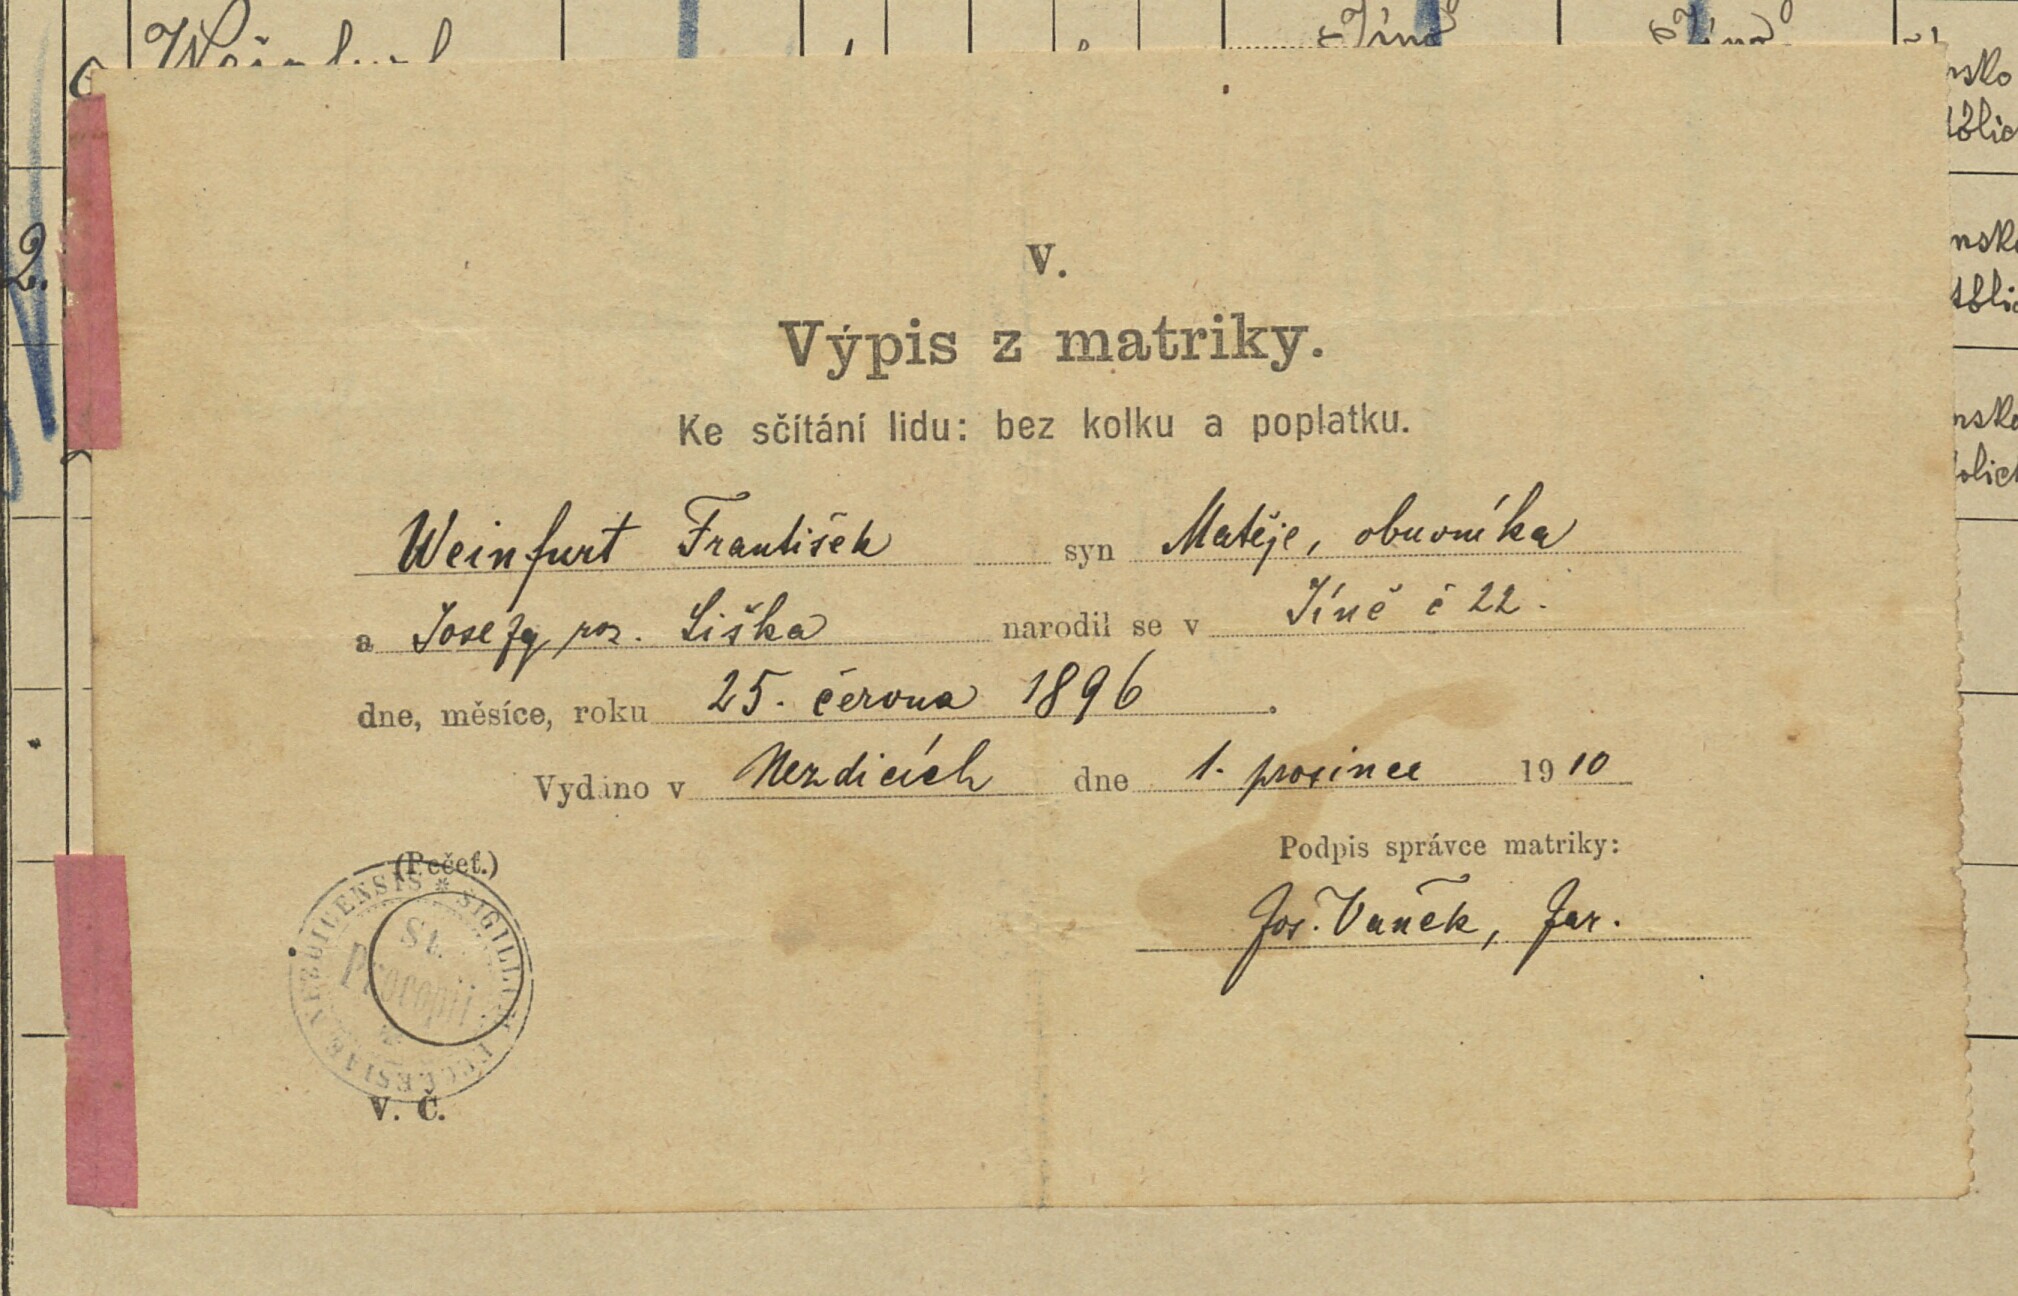 Weinfurt
2.
V.
Výpis z matriky.
Ke sčítání lidu: bez kolku a poplatku.
Weinfurt František syn Matěje, obuvníka
a Josefy roz. Liška narodil se v Jíně č 22.
dne, měsíce, roku 25. června 1896.
Vydáno v Nezdicích dne 1. prosince 1910
(Pečeť.)
Podpis správce matriky:
Jos. Vaněk, far.
SIGILLUM ECCLESIAE NEZDICENSIS *
St.
Procopii
V. Č.